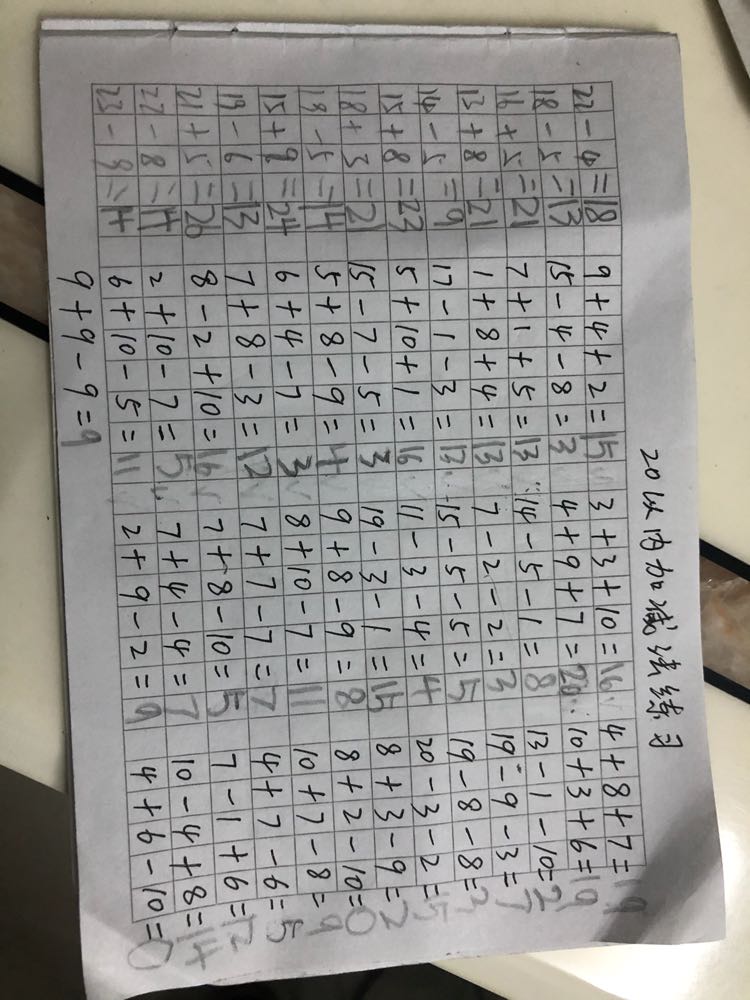 20以内加减法练习
22-4=18 9+4+2=15 3+3+10=16 4+8+7=19
18-5=13 15-4-8=3 4+9+7=20 10+3+6=19
16+5=21 7+1+5=13 14-5-1=8 13-1-10=2
13+8=21 1+8+4=13 7-2-2=3 19-9-3=7
14-5=9 17-1-3=13 15-5-5=5 19-8-8=3
15+8=23 5+10+1=16 11-3-4=4 20-3-2=15
18+3=21 15-7-5=3 19-3-1=15 8+3-9=2
19-5=14 5+8-9=4 9+8-9=8 8+2-10=0
15+9=24 6+4-7=3 8+10-7=11 10+7-8=9
19-6=13 7+8-3=12 7+7-7=7 4+7-6=5
21+5=26 8-2+10=16 7+8-10=5 7-1+6=12
22-8=14 2+10-7=5 7+4-4=7 10-4+8=14
23-9=14 6+10-5=11 2+9-2=9 4+6-10=0
9+9-9=9